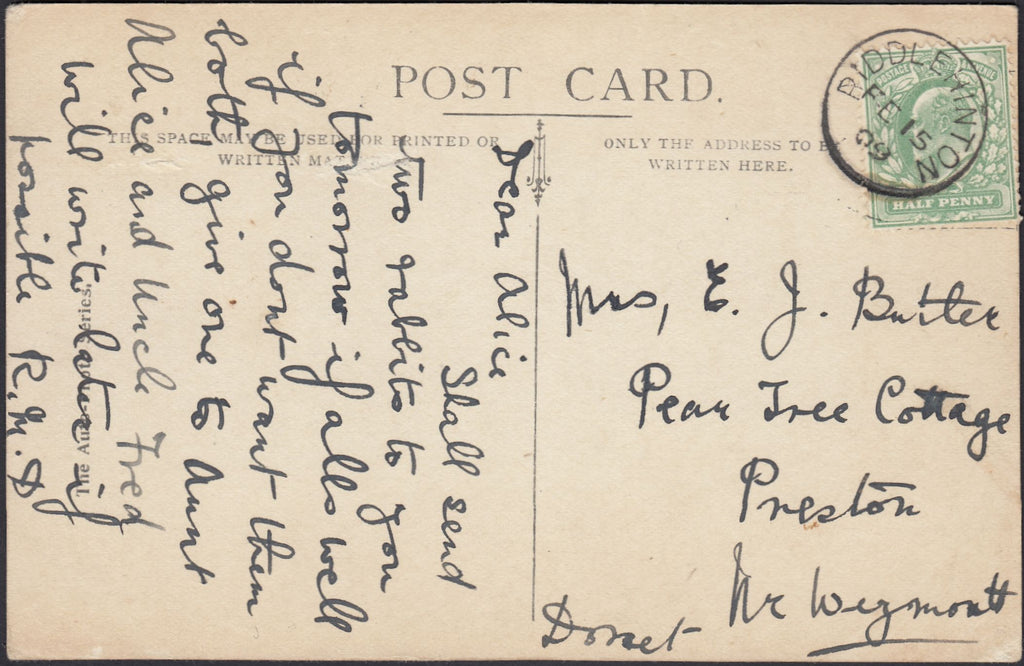 POST CARD.
THIS SPACE MAY BE USED FOR PRINTED OR
WRITTEN MAT
ONLY THE ADDRESS TO BE
WRITTEN HERE.
PIDDLEHINTON
FE 15
09
POSTAGE
HALF PENNY
Dear Alice
Shall send
two rabbits to you
tomorrow if alls well
if you dont want them
both give one to Aunt
Alice and Uncle Fred
will write later if
possible R. M. D
Mrs, E. J. Butler
Pear Tree Cottage
Preston
Nr Weymouth
Dorset